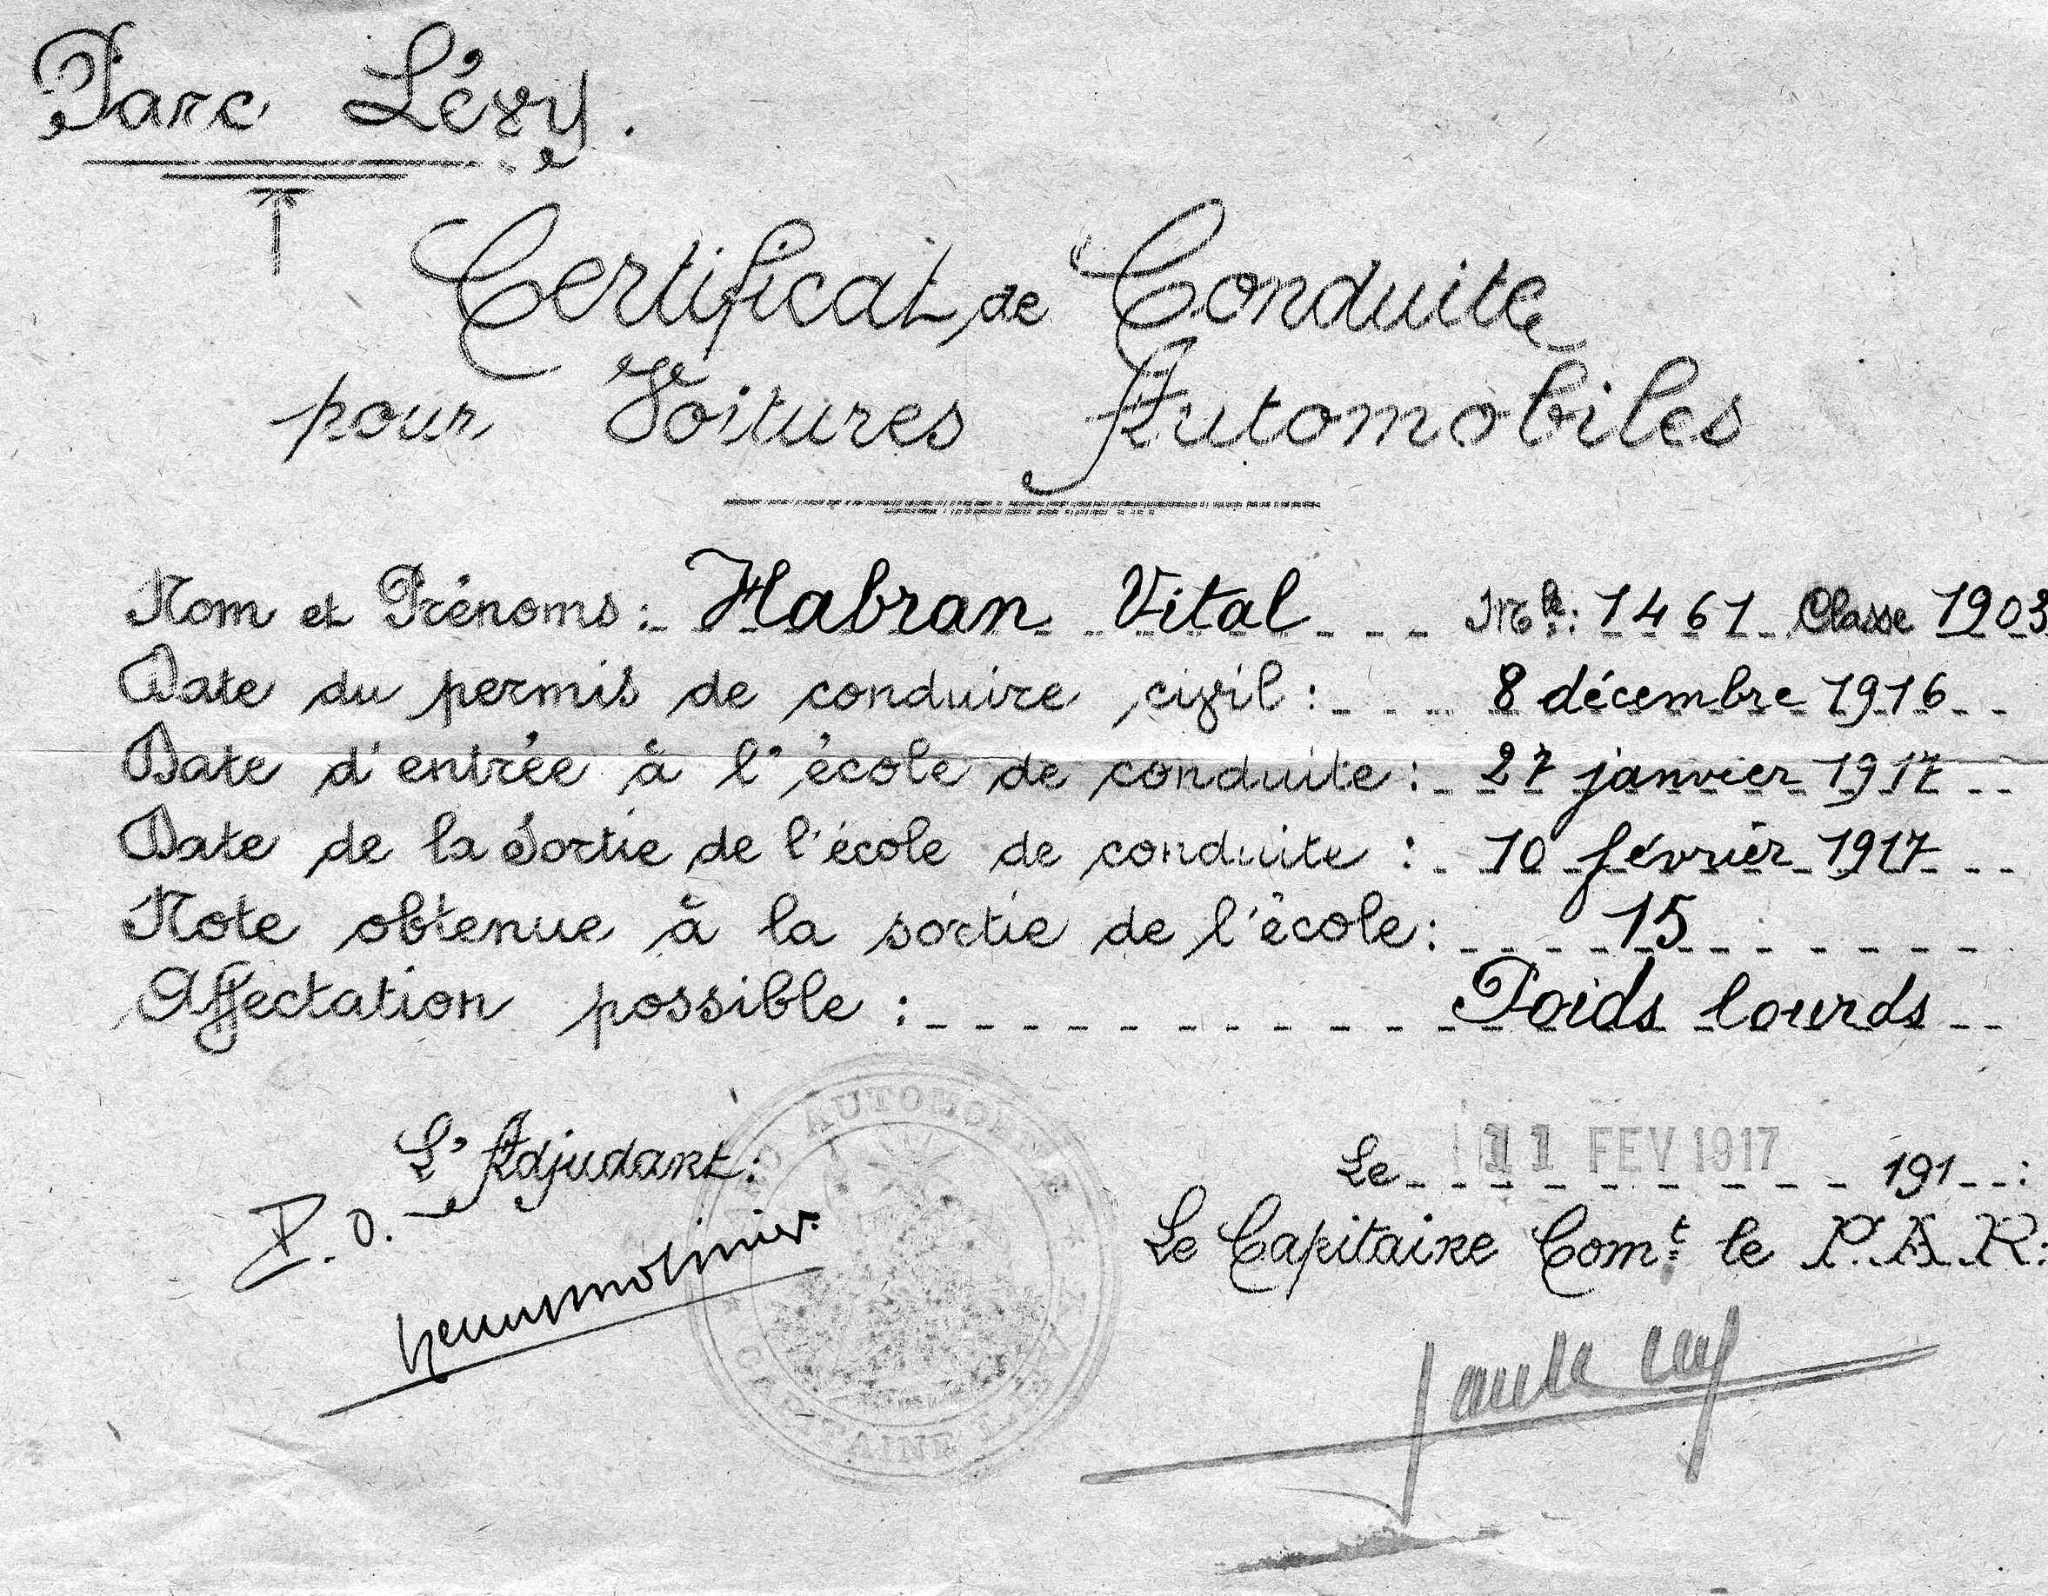 Parc Lévy.
Certificat de Conduite
pour Voitures Automobiles
Nom et Prénoms: Habran Vital Mle: 1461 Classe 1903
Date du permis de conduire civil: 8 décembre 1916
Date d'entrée à l'école de conduite: 27 janvier 1917
Date de la Sortie de l'école de conduite: 10 février 1917
Note obtenue à la sortie de l'école: 15
Affectation possible: Poids lourds
L'Adjudant:
P.O.
Le 11 FEV 1917 191 :
Le Capitaine Comt le P.A.R:
AUTOMOBILE
CAPITAINE LÉVY